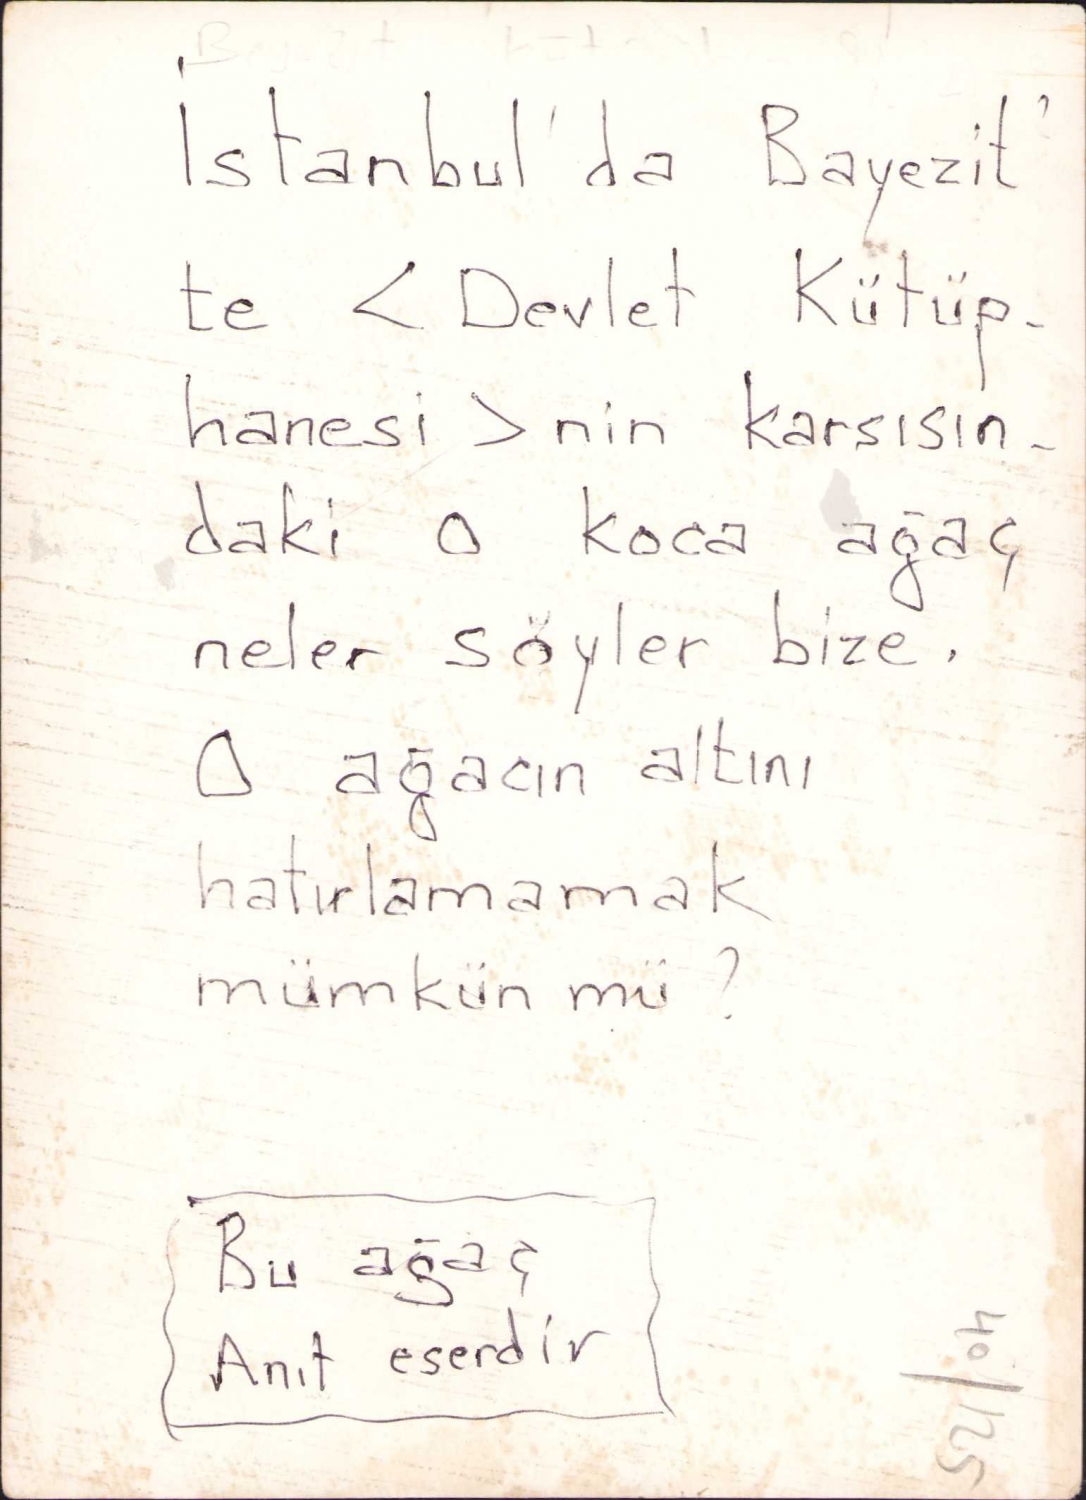 İstanbul'da Bayezit'
te < Devlet Kütüp-
hanesi > nin karsısın-
daki o koca ağaç
neler söyler bize.
O ağacın altını
hatırlamamak
mümkün mü ?
Bu ağaç
Anıt eserdir